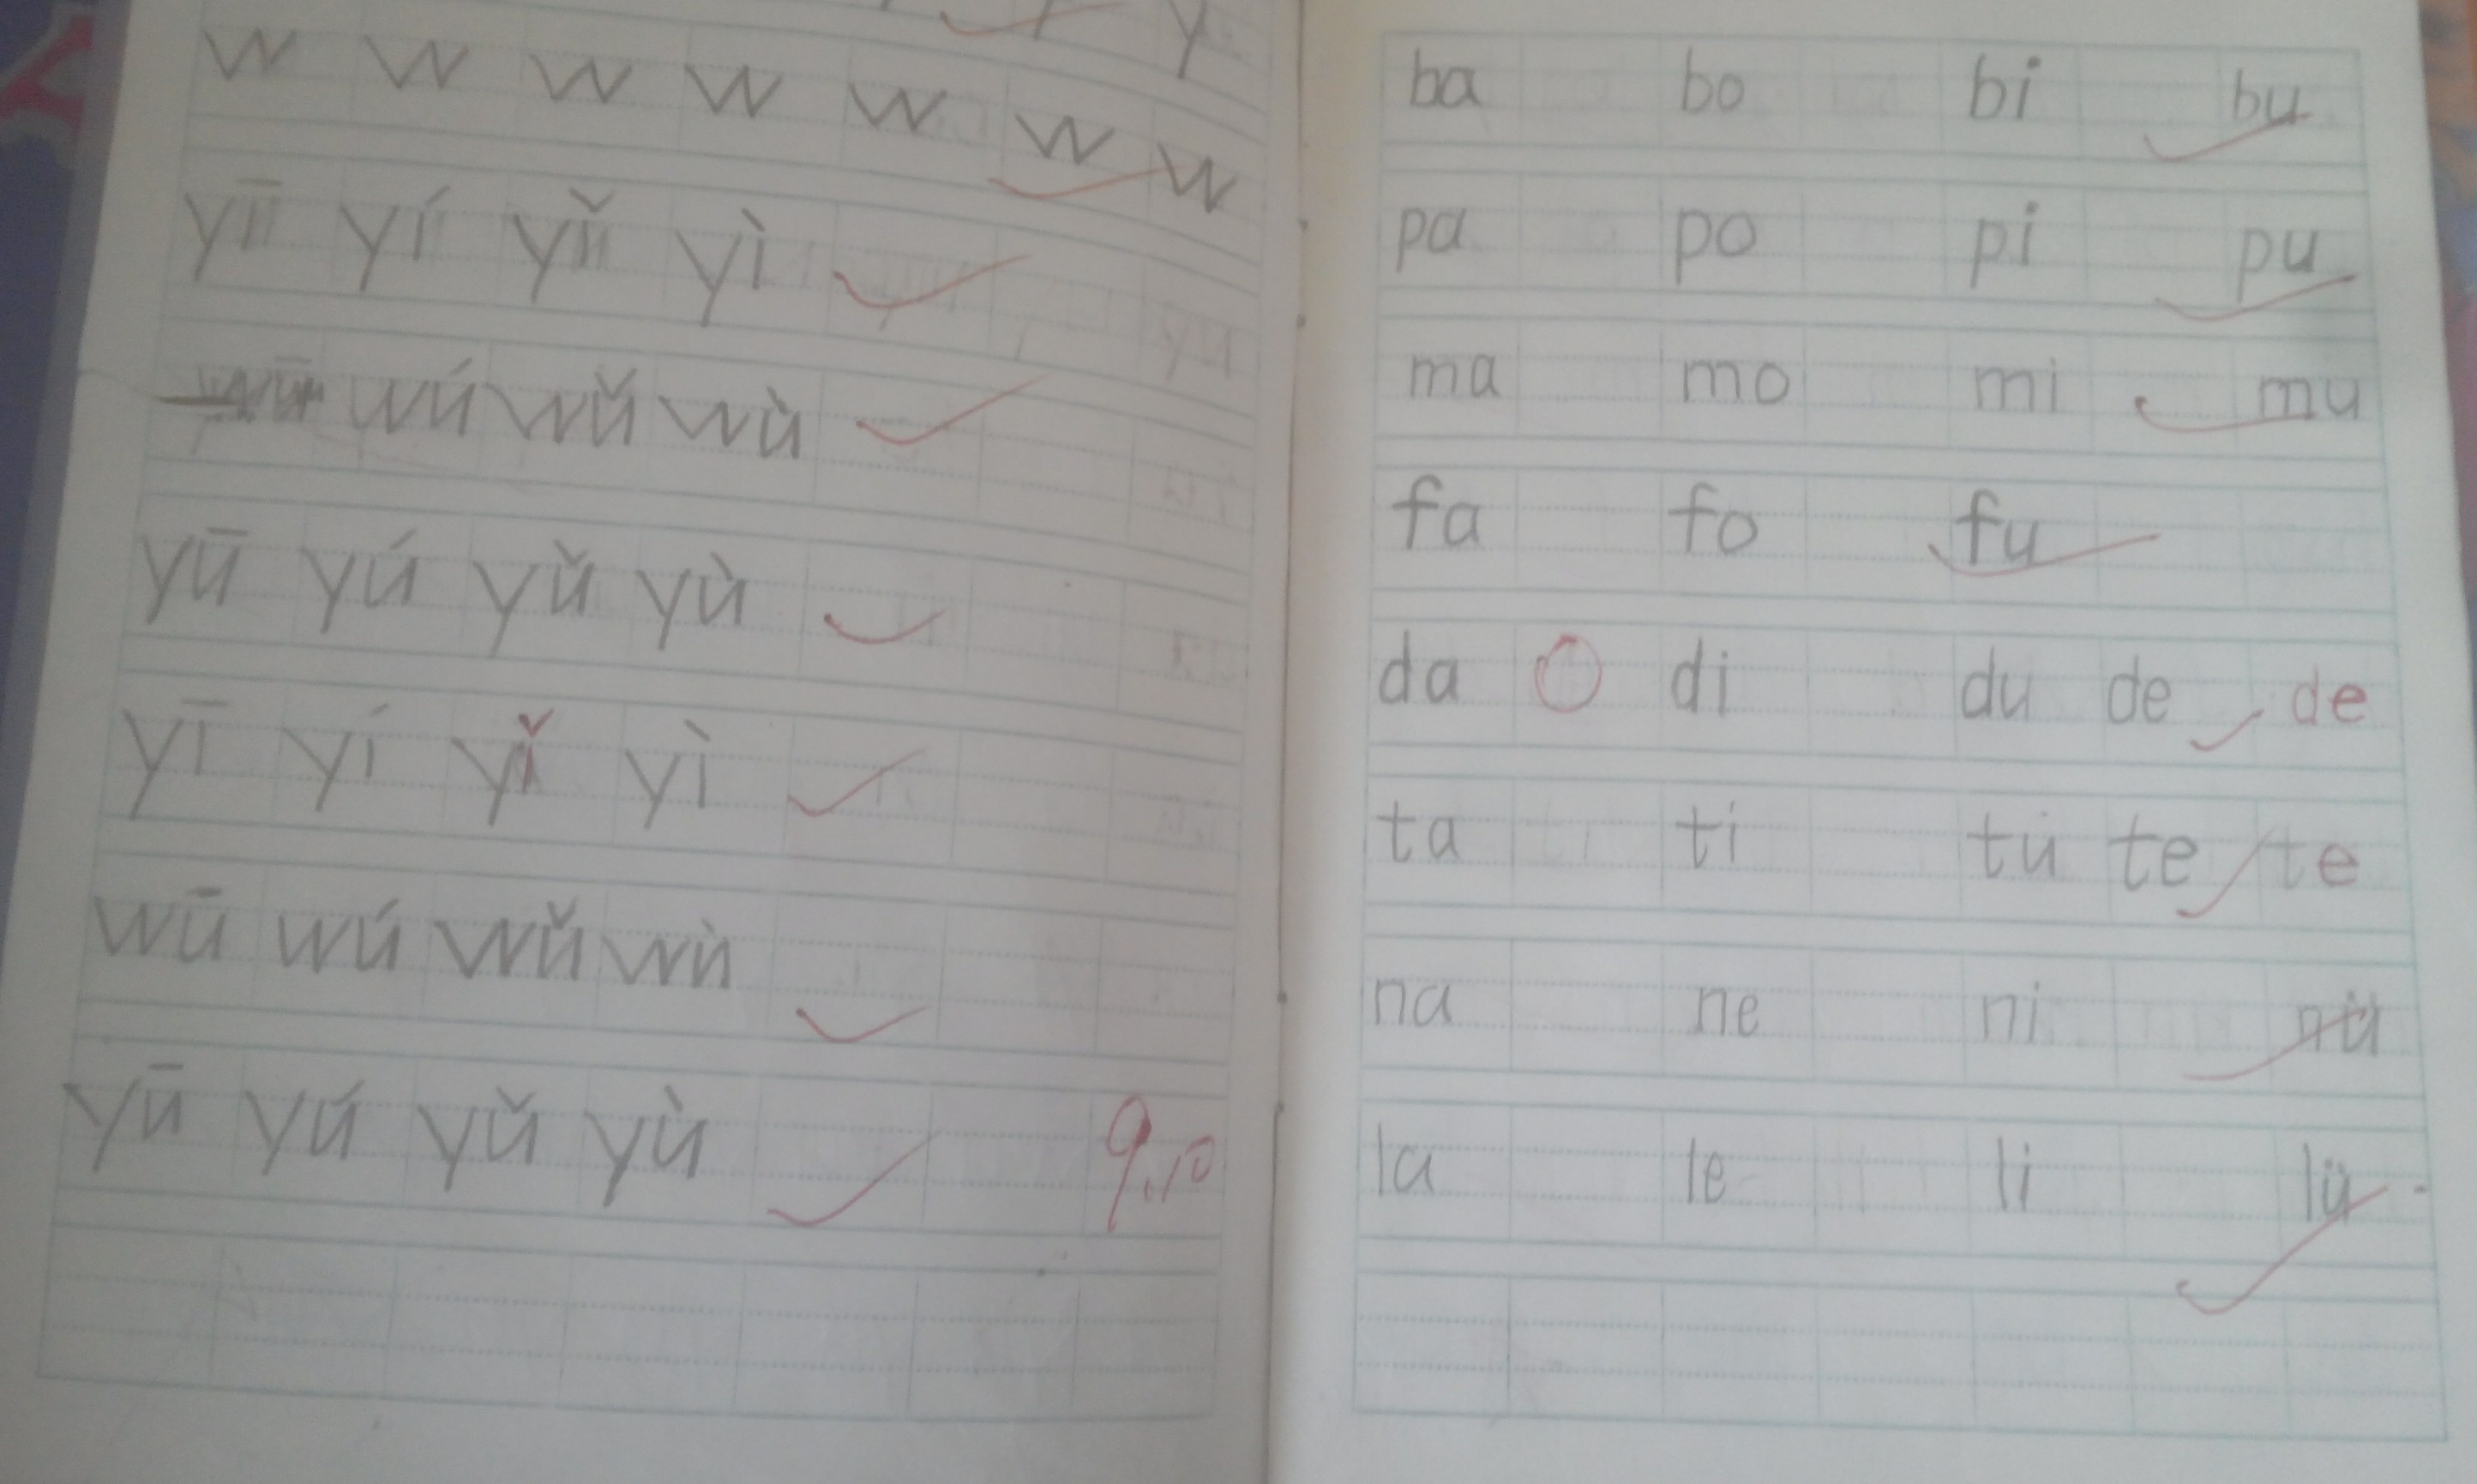 y
w w w w w w w
yī yí yǐ yì
wū wú wǔ wù
yū yú yǔ yù
yī yí yǐ yì
wū wú wǔ wù
yū yú yǔ yù 9.10
ba bo bi bu
pa po pi pu
ma mo mi mu
fa fo fu
da di du de de
ta ti tu te te
na ne ni
la le li lü